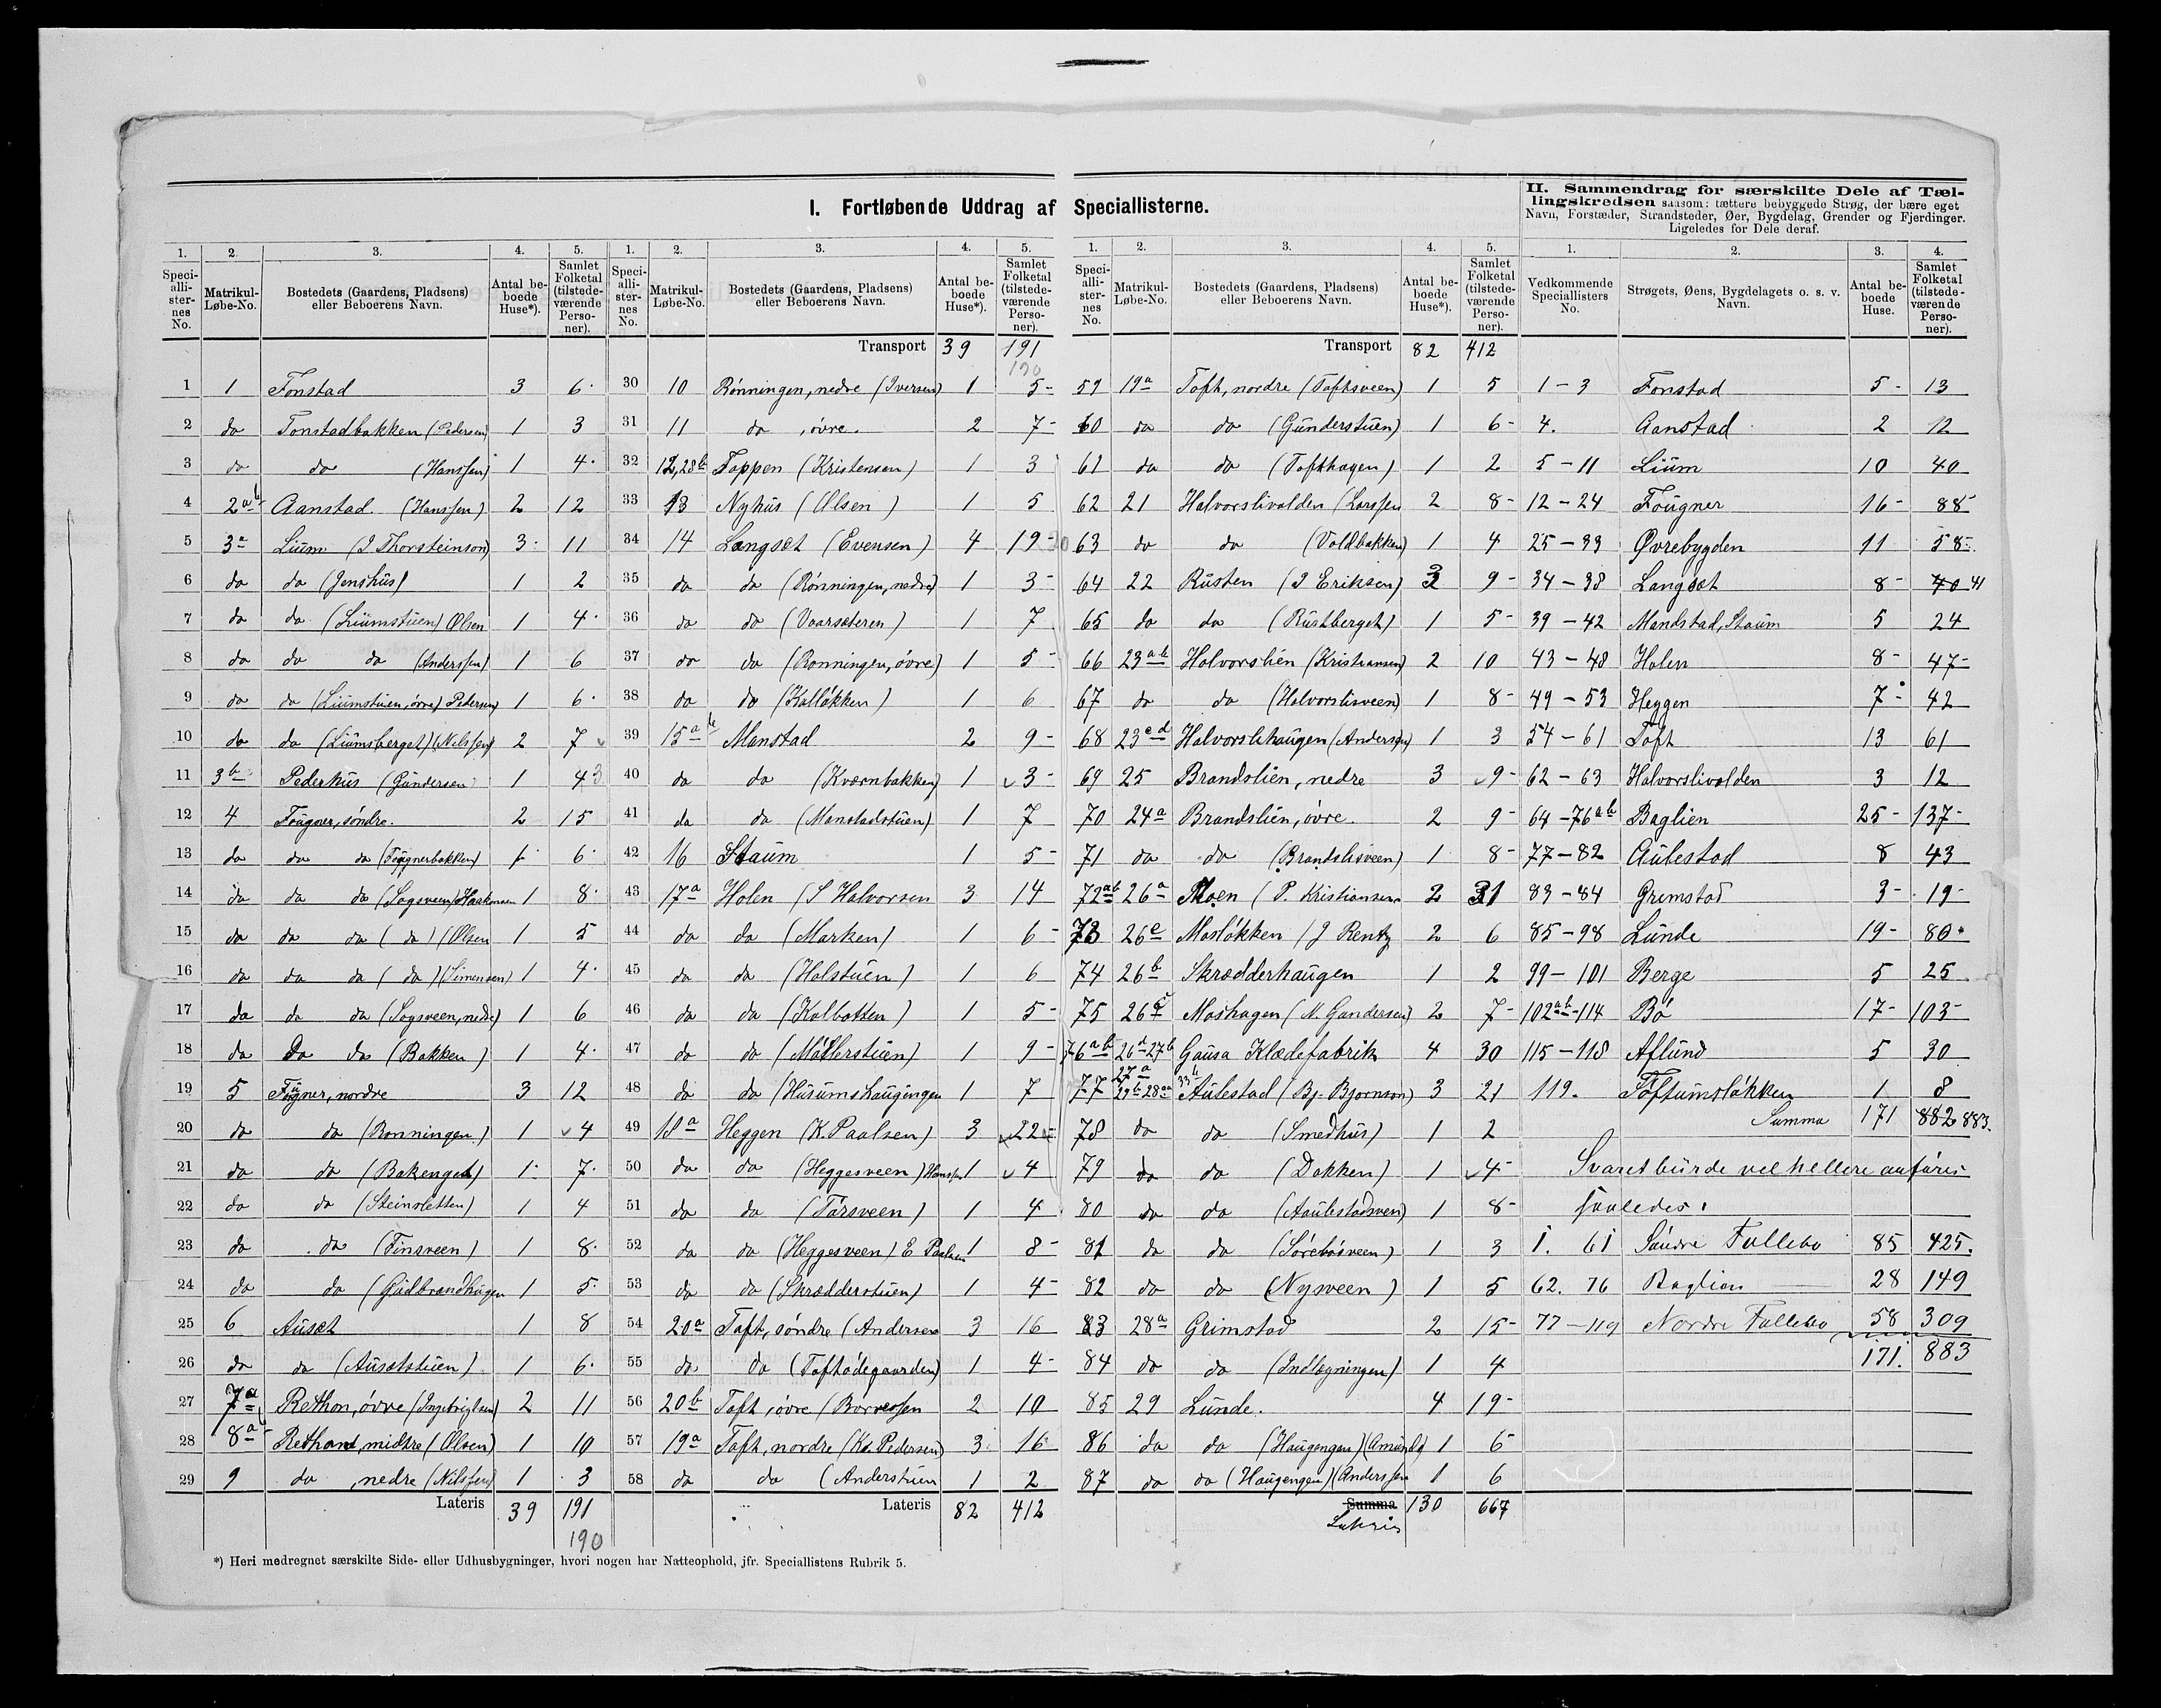 I. Fortløbende Uddrag af Speciallisterne.
1. 2. 3. 4. 5.
Speciallisternes No. Matrikul-Løbe-No. Bostedets (Gaardens, Pladsens) eller Beboerens Navn. Antal beboede Huse*). Samlet Folketal (tilstedeværende Personer).
1 1 Fonstad 3 6.
2 do Fonstadbakken (Pedersen) 1 3
3 do do (Hanssen) 1 4.
4 2ab Aanstad (Hanssen) 2 12
5 3a Lium (J Thorsteinson) 3. 11
6 do do (Jenshus) 1 2
7 do do (Liumstuen) Olsen 1 4.
8 do do do (Anderssen) 1 6
9 do do (Liumstuen, øvre) Pedersen 1 6.
10 do do (Liumsberget) (Nilssen) 2 7
11 3b Pederhus (Gundersen 1 4 3
12 4 Fougner, søndre. 2 15
13 do do do (Fougnerbakken) 1. 6.
14 do do do (Sogsveen) Haakonsen 1 8.
15 do do do (do) (Olsen 1 5
16 do do do (do) (Simensen) 1 4.
17 do do do (Sogsveen, nedre) 1 6
18 do do do (Bakken) 1 4.
19 5 Fougner, nordre 3 12
20 do do (Ronningen) 1 4
21 do do (Bakenget) 1. 7.
22 do do (Steinsletten) 1 4
23 do do (Finsveen) 1 8.
24 do do (Gudbrandhugen 1 5.
25 6 Ausæt 1 8
26 do do (Ausætstuen) 1 6.
27 7a Rethon, øvre (Ingebrigtsen) 2 11
28 8ab Rethon, midtre (Olsen) 1 10
29 9 do , nedre (Nilssen) 1 3
Lateris 39 191
190
1. 2. 3. 4. 5.
Speciallisternes No. Matrikul-Løbe-No. Bostedets (Gaardens, Pladsens) eller Beboerens Navn. Antal beboede Huse*). Samlet Folketal (tilstedeværende Personer).
Transport 39 191
190
30 10 Rønningen, nedre (Iversen) 1 5-
31 11 do , øvre. 2 7-
32 12,28b Toppen (Kristensen) 1 3
33 13 Nyhus (Olsen) 1 5
34 14 Langsæt (Evensen) 4 19-
35 do do (Rønningen, nedre) 1 3-
36 do do (Vaarsæteren) 1 7
37 do do (Ronningen, øvre) 1 5-
38 do do (Kalløkken) 1 6
39 15ab Manstad 2 9-
40 do do (Kværnbakken) 1 3-
41 do do (Manstadstuen) 1 7
42 16 Staum 1 5-
43 17a Holen (S Halvorsen 3 14
44 do do (Marken) 1 6-
45 do do (Holstuen) 1 6
46 do do (Kolbotten) 1 5-
47 do do (Møllerstuen) 1 9-
48 do do (Husumshaugengen 1 7
49 18a Heggen (K. Paalsen) 3 22-
50 do do (Heggesveen) Hanssen 1 4
51 do do (Tørsveen) 1 4
52 do do (Heggesveen) E Paalsen 1 8-
53 do do (Skrædderstuen) 1 4-
54 20a Toft, søndre (Andersen 3 16
55 do do (Toftødegaarden) 1 4-
56 20b Toft, øvre (Børresen 2 10
57 19a Toft, nordre (Kr. Pedersen) 3 16
58 do do (Anderstuen 1 2
Lateris 82 412
1. 2. 3. 4. 5.
Speciallisternes No. Matrikul-Løbe-No. Bostedets (Gaardens, Pladsens) eller Beboerens Navn. Antal beboede Huse*). Samlet Folketal (tilstedeværende Personer).
Transport 82 412
59 19a Toft, nordre (Toftsveen) 1 5
60 do do (Gunderstuen) 1 6-
61 do do (Tofthagen) 1 2
62 21 Halvorslivolden (Larssen 2 8-
63 do do (Voldbakken) 1 4
64 22 Rusten (J Eriksen) 3 9-
65 do do (Rustberget) 1 5-
66 23ab Halvorslien (Kristiansen) 2 10
67 do do (Halvorslisveen) 1 8-
68 23cd Halvorslihaugen (Andersen) 1 3
69 25 Brandslien, nedre 3 9-
70 24a Brandslien, øvre. 2 9-
71 do do (Brandslisveen) 1 8-
72ab 26a Moen (P. Kristiansen 2 31
73 26e Mosløkken (J Rentz 2 6
74 26b Skrædderhaugen 1 2
75 26c Moshagen (N. Gundersen) 2 7-
76ab 26d 27b Gausa Klædefabrik 4 30
77 27a 29b 28aa 33b Aulestad (Bj. Bjørnson) 3 21
78 do do (Smedhus) 1 2
79 do do (Dokken) 1 4-
80 do do (Aulestadsveen) 1 8-
81 do do (Sørebøsveen) 1 3
82 do do (Nysveen) 1 5
83 28a Grimstad 2 15-
84 do do (Indlægningen) 1 4
85 29 Lunde. 4 19-
86 do do (Haugengen) (Amunds) 1 6
87 do do (Haugengen) (Anderssen 1 6
Summa 130 667
Lateris
II. Sammendrag for særskilte Dele af Tællingskredsen saasom: tættere bebyggede Strøg, der bære eget
Navn, Forstæder, Strandsteder, Øer, Bygdelag, Grender og Fjerdinger.
Ligeledes for Dele deraf.
1. 2. 3. 4.
Vedkommende Speciallisters No. Strøgets, Øens, Bygdelagets o. s. v. Navn. Antal beboede Huse. Samlet Folketal (tilstedeværende Personer).
1-3 Fonstad 5- 13
4. Aanstad 2 12
5-11 Lium 10 40
12-24 Fougner 16- 88-
25-33 Øvrebygden 11 58-
34-38 Langsæt 8- 40 41
39-42 Mandstad, Staum 5 24
43-48 Holen 8- 47-
49-53 Heggen 7- 42
54-61 Toft 13 61
62-63 Halvorslivolden 3 12
64-76ab Baglien 25- 137-
77-82 Aulestad 8 43
83-84 Gremstad 3- 19-
85-98 Lunde 19- 80
99-101 Berge 5 25
102ab-114 Bø 17- 103-
115-118 Aflund 5 30
119. Toftumsløkken 1 8
Summa 171 882 883.
Svaret burde vel hellere anføres
saaledes:
1. 61 Søndre Follebo 85 425.
62. 76 Baglien 28 149
77-119 Nordre Follebo 58 309
171. 883
*) Heri medregnet særskilte Side- eller Udhusbygninger, hvori nogen har Natteophold, jfr. Speciallistens Rubrik 5.